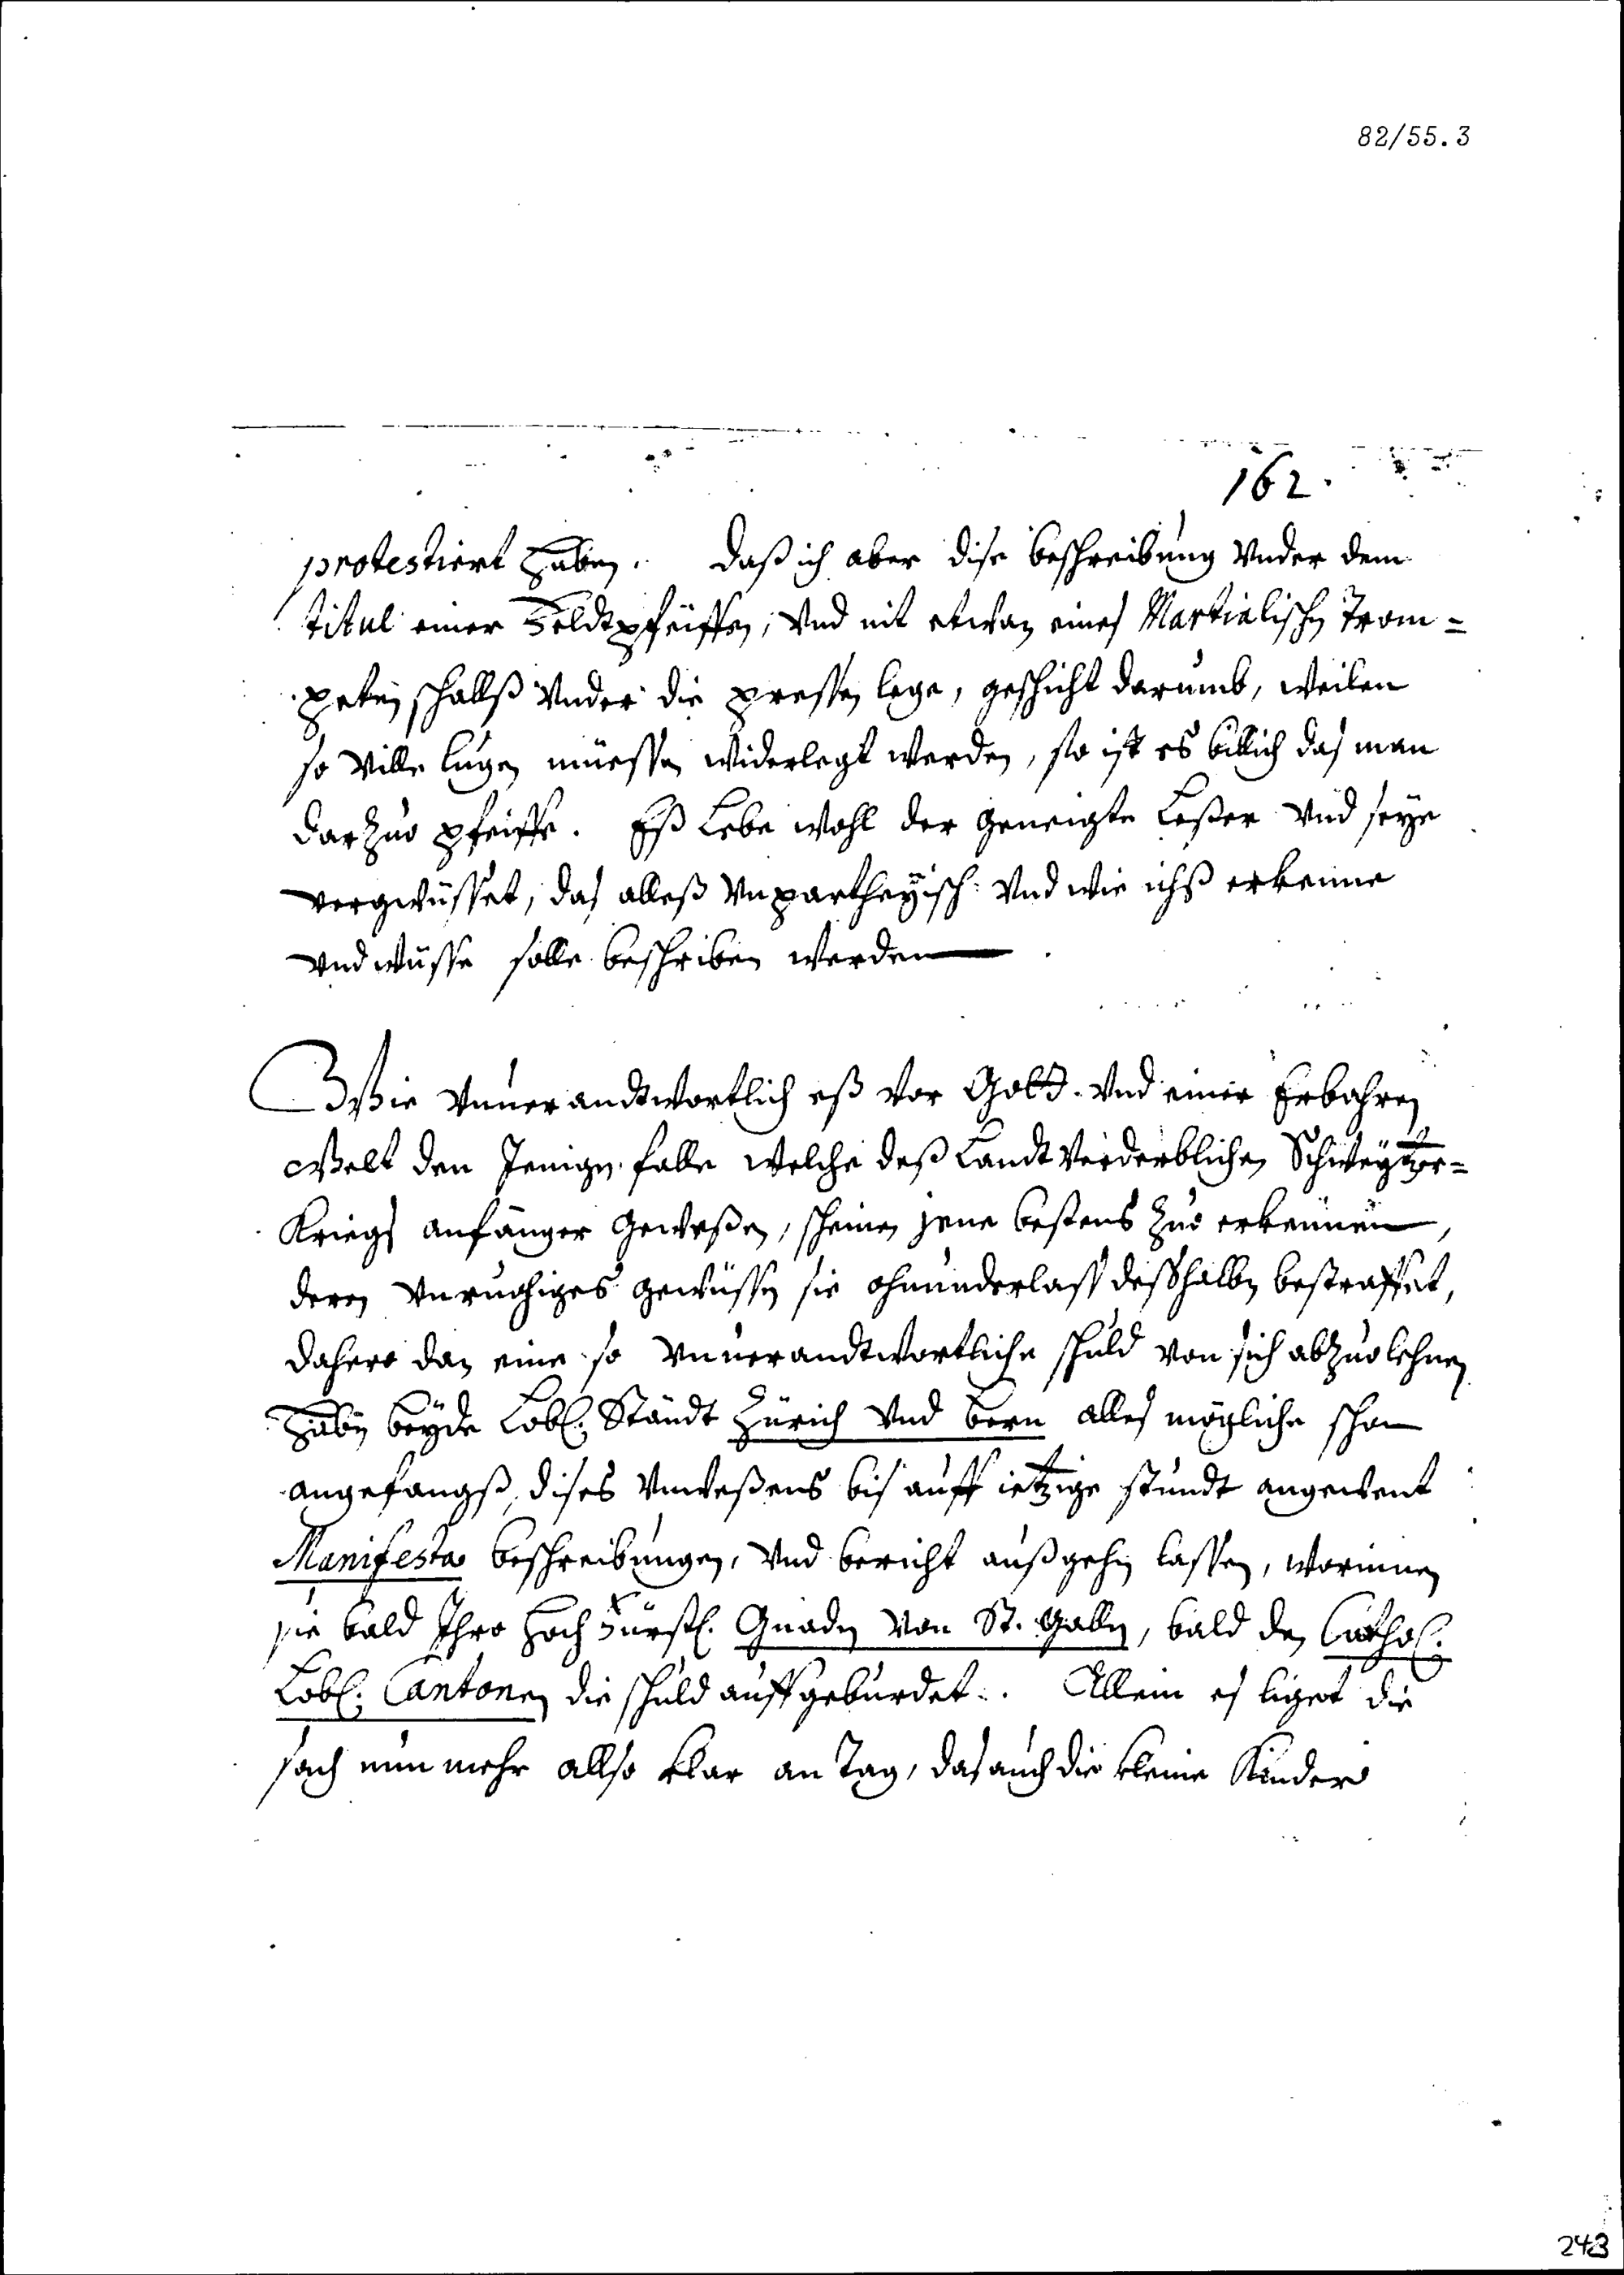 82/55.3
162.
protestiert haben. daß ich aber dise beschreibung Vnder dem
titul einer Feldtpfeiffen, Vnd mit etwan eines Martialischen Trom=
peten schallß Vnder die pressen lege, geschicht darumb, weilen
so Ville lugen müessen widerlegt werden, so ist es billich das man
darzuo pfeiffe. Eß Lebe wohl der geneigte Leßer Vnd seye
vergwüsset, das alleß Vnpartheyisch: Vnd wie ichß erkenne
Vnd wüsse solle beschriben werden
Wie Vnuerandtwortlich eß Vor Gott. Vnd einer Erbahren
Welt den Jenigen falle welche deß Landt Verderblichen Schweytzer=
Kriegs anfänger geweßen, scheinen jene bestens zuo erkennen,
deren Vnruohiges gewüssen sie ohnunderlass desshalben bestraffet,
dahero dan eine so Vnuerandtwortliche schuld von sich abzuolehnen
haben beyde Lobl: Ständt Zürich Vnd Bern alles mögliche schon
angefangß dises Vnweßens bis auff ietzige stundt angewent
Manifesta beschreibungen, Vnd bericht außgehen lassen, worinnen
sie bald Ihro hoch Fürstl. Gnaden Von St. Gallen, bald den Cathol:
Lobl: Cantonen die schuld auffgeburdet. Allein es liget die
sach nun mehr allso klar an Tag, das auch die kleine Kinder
243